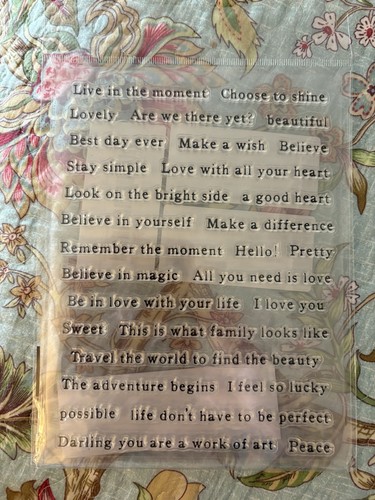 Live in the moment Choose to shine
Lovely Are we there yet? beautiful
Best day ever Make a wish Believe
Stay simple Love with all your heart
Look on the bright side a good heart
Believe in yourself Make a difference
Remember the moment Hello! Pretty
Believe in magic All you need is love
Be in love with your life I love you
Sweet This is what family looks like
Travel the world to find the beauty
The adventure begins I feel so lucky
possible life don't have to be perfect
Darling you are a work of art Peace